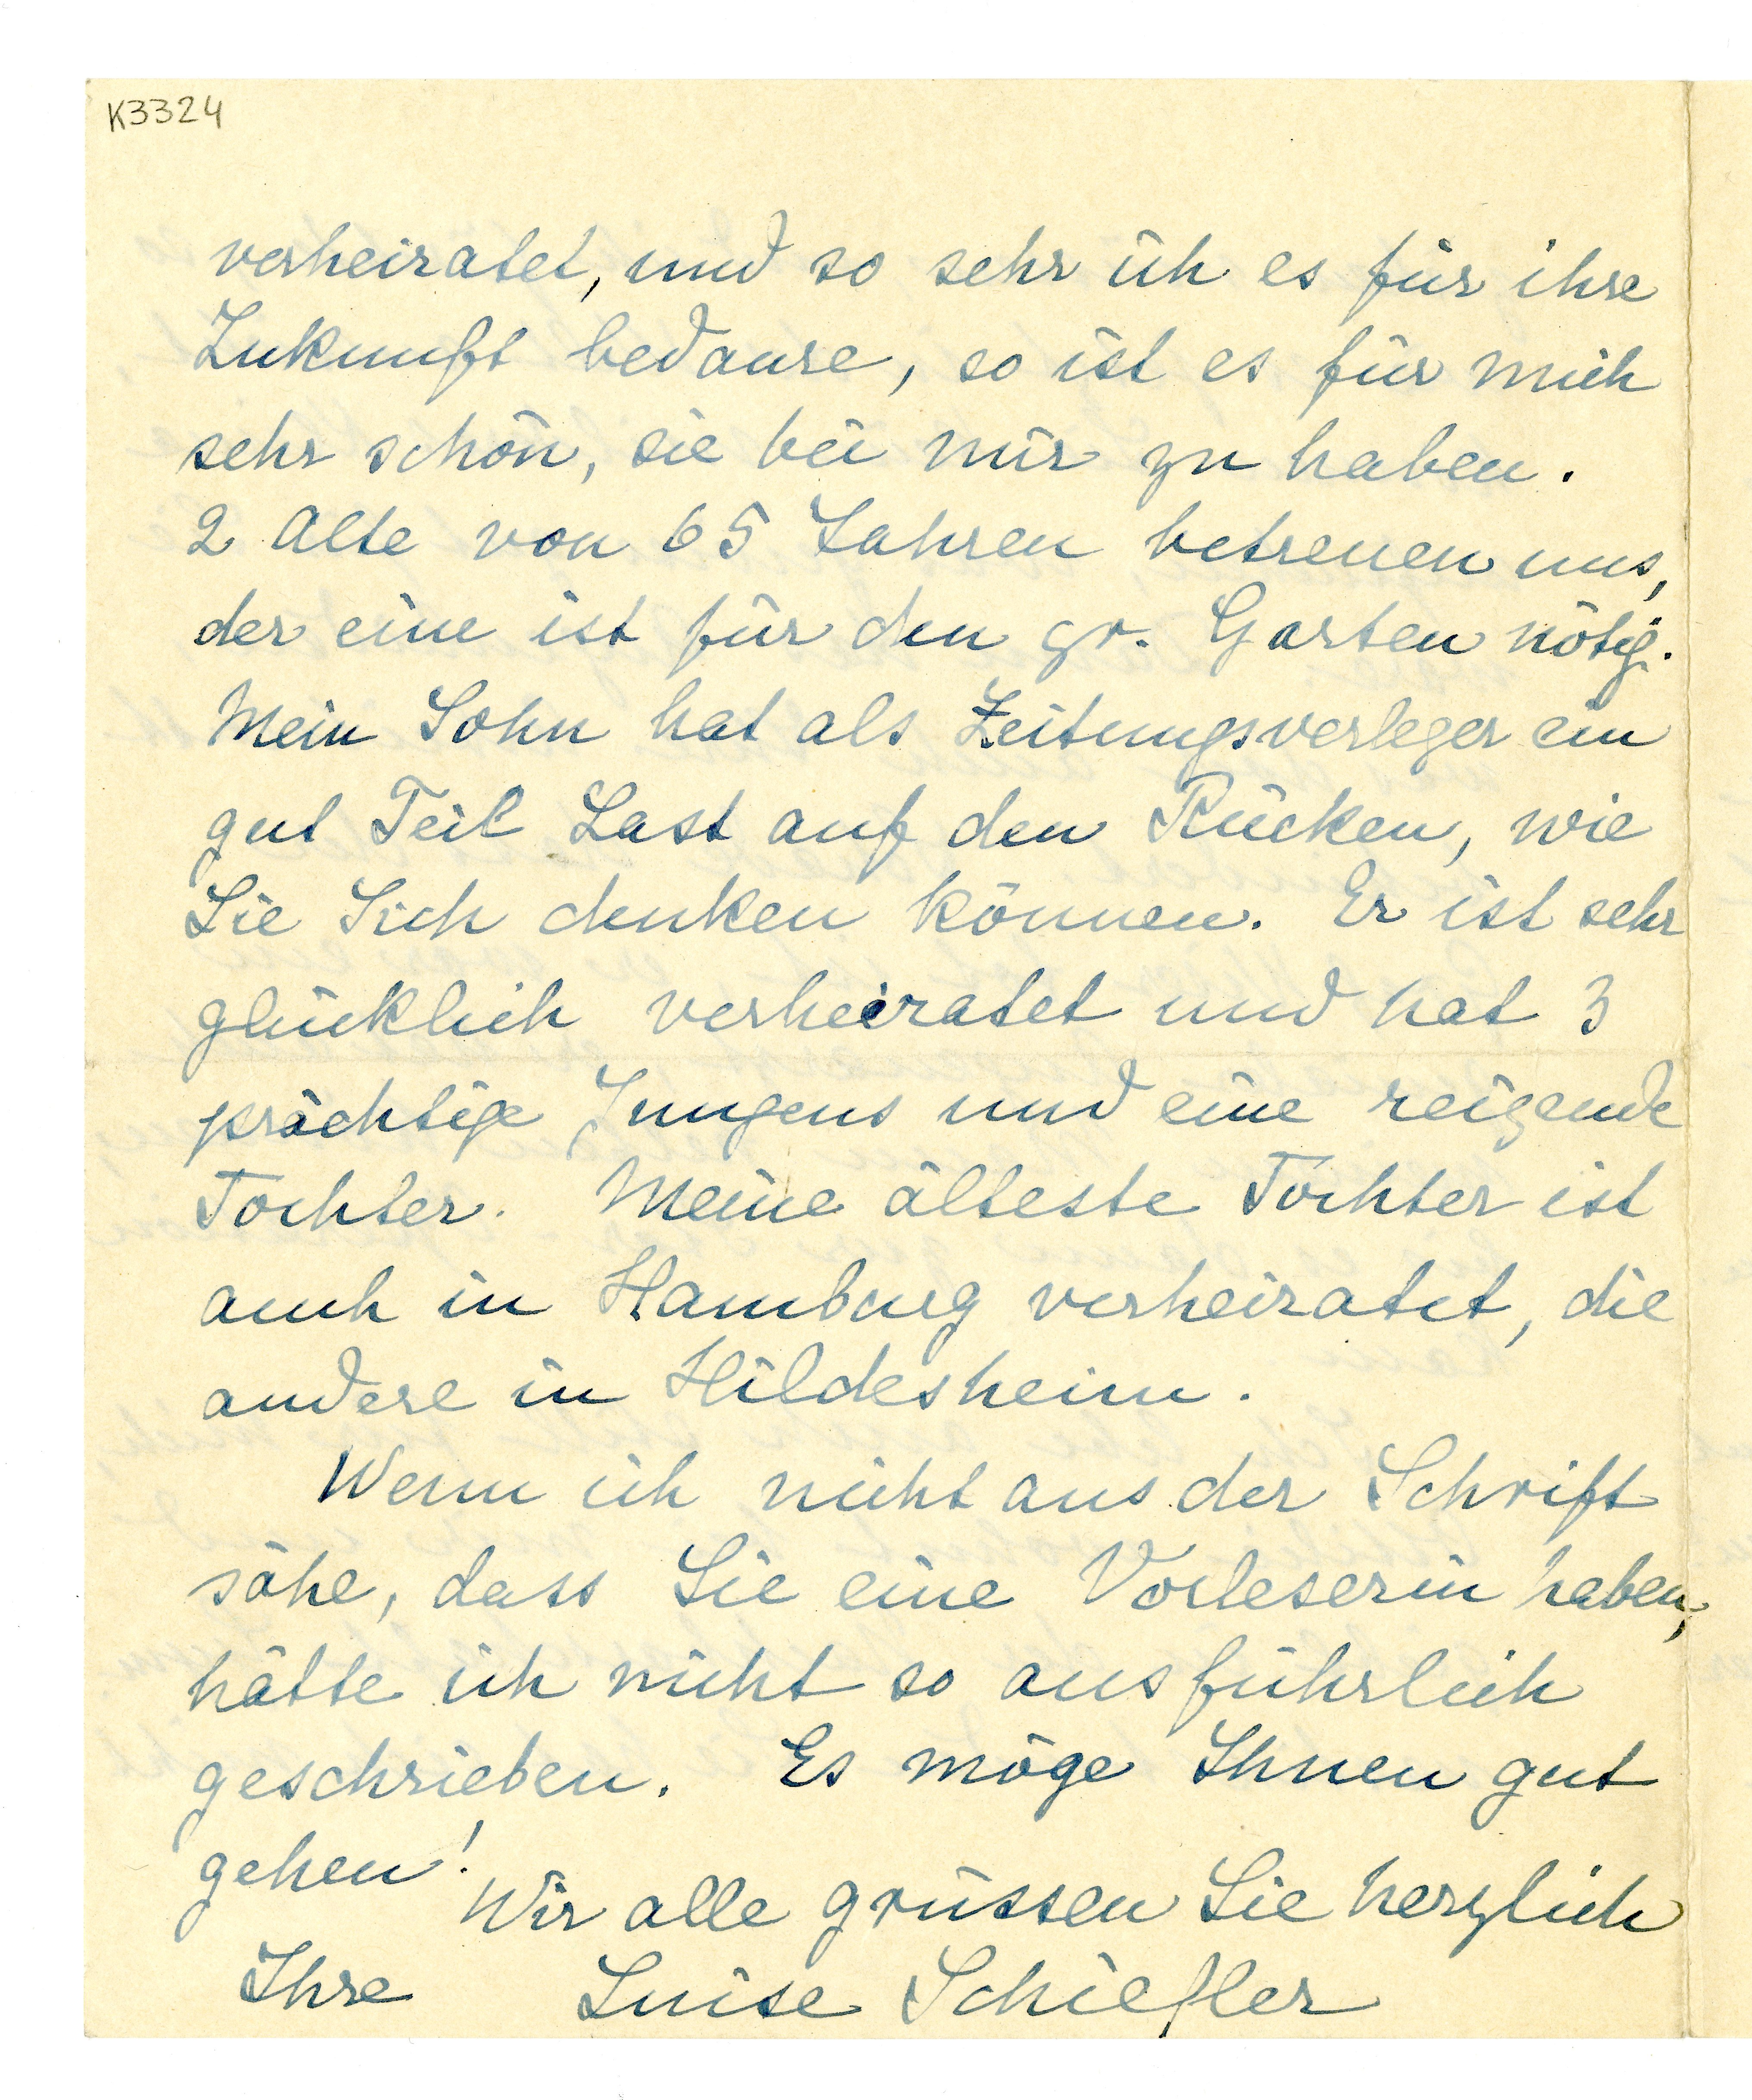 K3324
verheiratet, und so sehr ich es für ihre
Zukunft bedaure, so ist es für mich
sehr schön, sie bei mir zu haben.
2 Alte von 65 Jahren betreuen uns,
der eine ist für den gr. Garten nötig.
Mein Sohn hat als Zeitungsverleger ein
gut Teil Last auf den Rücken, wie
Sie Sich denken können. Er ist sehr
glücklich verheiratet und hat 3
prächtige Jungens und eine reizende
Tochter. Meine älteste Tochter ist
auch in Hamburg verheiratet, die
andere in Hildesheim.
Wenn ich nicht aus der Schrift
sähe, dass Sie eine Vorleserin haben,
hätte ich nicht so ausführlich
geschrieben. Es möge Ihnen gut
gehen!
Wir alle grüssen Sie herzlich
Ihre Luise Schiefler